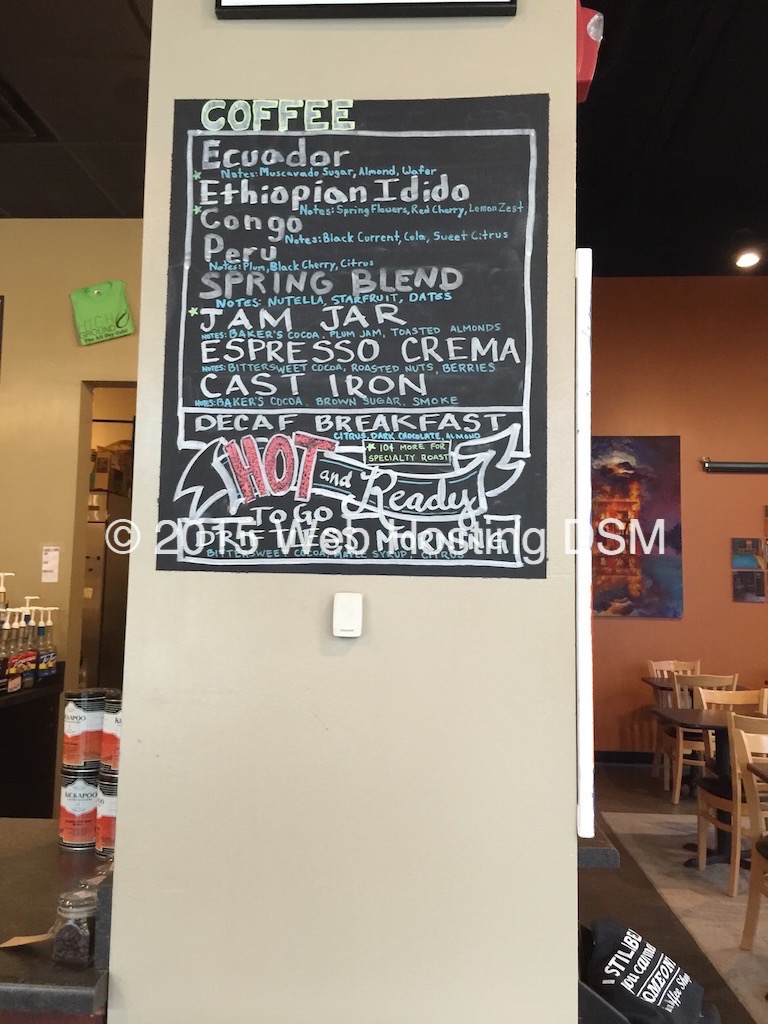 COFFEE
Ecuador
Notes: Muscavado Sugar, Almond, Wafer
Ethiopian Idido
Notes: Spring Flowers, Red Cherry, Lemon Zest
Congo
Notes: Black Current, Cola, Sweet Citrus
Peru
Notes: Plum, Black Cherry, Citrus
SPRING BLEND
NOTES: NUTELLA, STARFRUIT, DATES
JAM JAR
NOTES: BAKER'S COCOA, PLUM JAM, TOASTED ALMONDS
ESPRESSO CREMA
NOTES: BITTERSWEET COCOA, ROASTED NUTS, BERRIES
CAST IRON
NOTES: BAKER'S COCOA, BROWN SUGAR, SMOKE
DECAF BREAKFAST
CITRUS, DARK CHOCOLATE, ALMOND
10¢ MORE FOR
SPECIALTY ROAST
HOT and Ready
To Go
DRIFTLESS MORNING
BITTERSWEET COCOA, MAPLE SYRUP, CITRUS
© 2015 Web Hosting DSM
HIGH
GROUND
KICKAPOO
I STILL BE
you can
OMEON
offee Shop